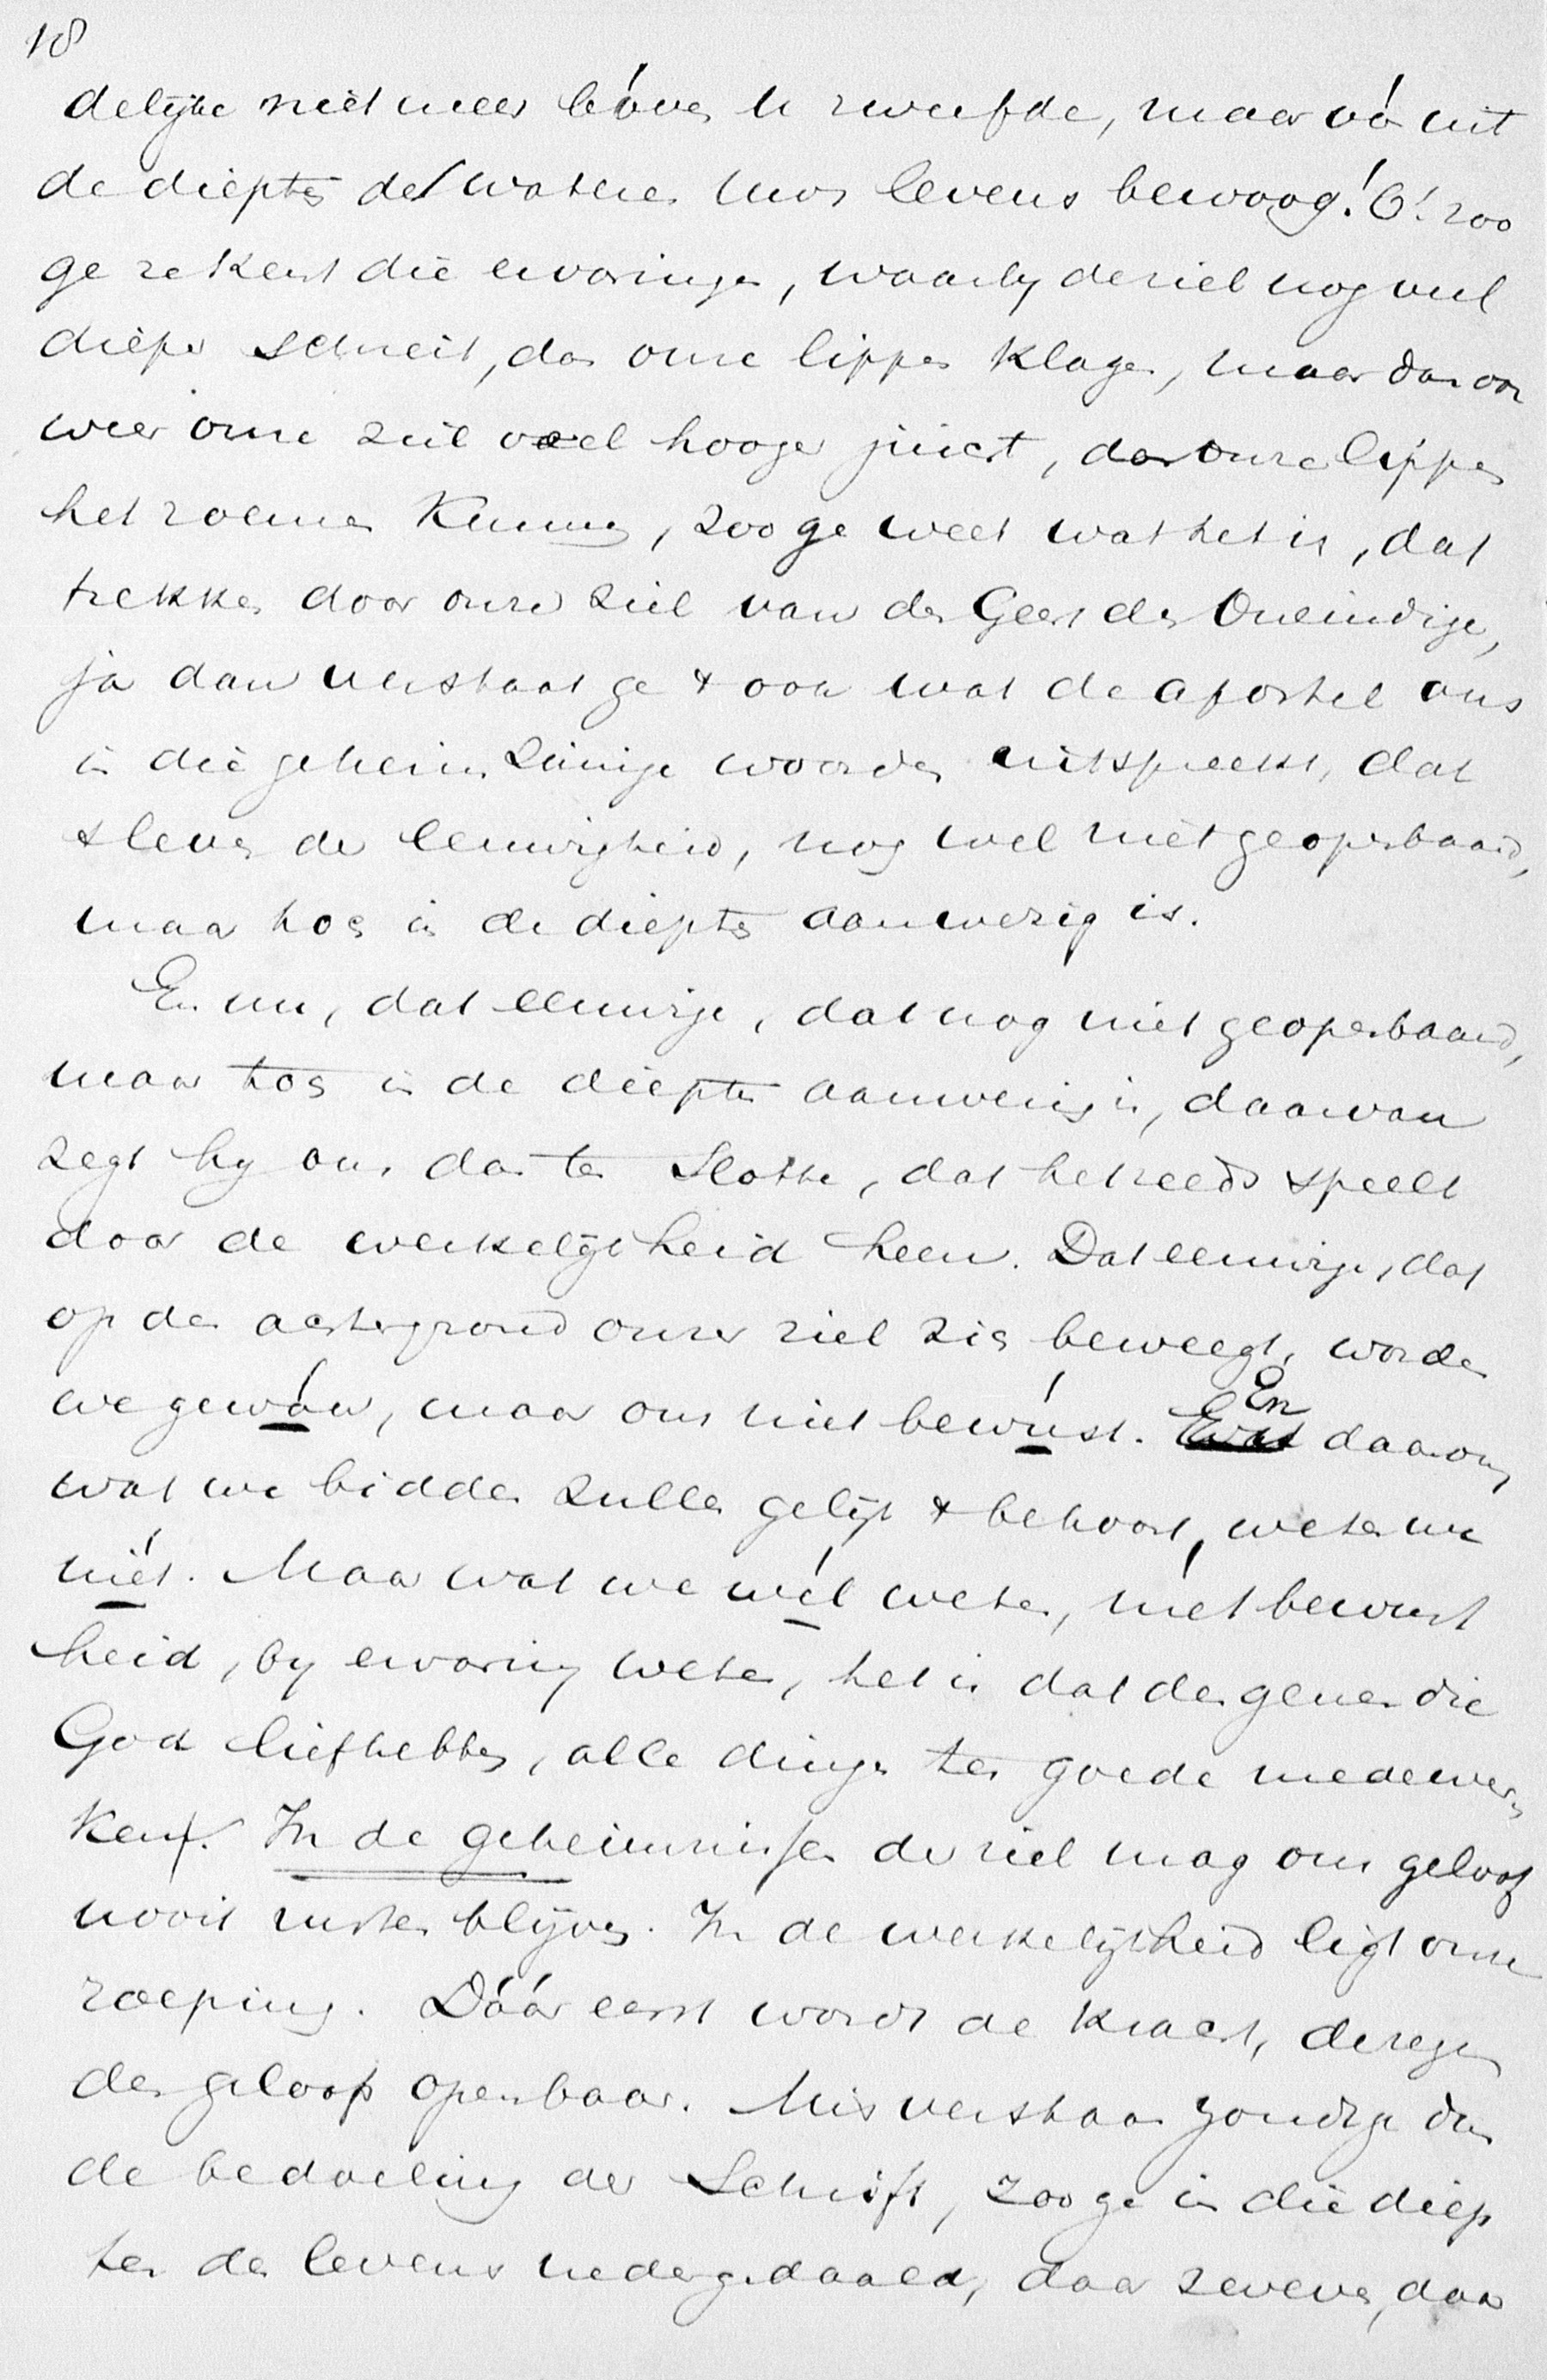 18
delijke niet meer bóven u zweefde, maar óó uit
de diepte de wateren uws levens bewoog! O! zoo
ge ze kent die ervaringen, waarbij de ziel nog veel
dieper schreit, dan onze lippen klagen, maar dan ook
weer onze ziel veel hooger juicht, dan onze lippen
het roemen kunnen, zoo ge weet wat het is, dat
trekken door onze ziel van den Geest des Oneindigen,
ja dan verstaat ge 't ook wat de apostel ons
in die geheimzinnige woorden uitspreekt, dat
't leven der eeuwigheid, nog wel niet geopenbaard,
maar toch in de diepte aanwezig is.
En nu, dat eeuwige, dat nog niet geopenbaard,
maar toch in de diepte aanwezig is, daarvan
zegt hij ons dan ten slotte, dat het reeds speelt
door de werkelijkheid heen. Dat eeuwige, dat
op den achtergrond onzer ziel zich beweegt, worden
we gewáar, maar ons niet bewúst. En daarom
wat we bidden zullen gelijk 't behoort, weten we
niét. Maar wat we wél weten, met bewust
heid, bij ervaring weten, het is dat dengenen die
God liefhebben, alle dingen ten goede medewer-
ken. In de geheimnissen der ziel mag ons geloof
nooit rusten blijven. In de werkelijkheid ligt onze
roeping. Dáár eerst wordt de kracht, de zegen
des geloofs openbaar. Misverstaan zoudt ge dus
de bedoeling der Schrift, zoo ge in die diep
ten des levens nedergedaald, daar zweven, daar